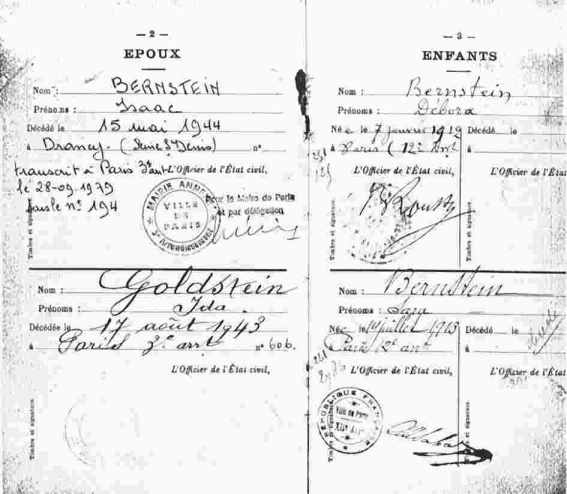 — 2 —
EPOUX
Nom : BERNSTEIN
Prénoms : Isaac
Décédé le 15 mai 1944
à Drancy. (Seine St Denis) n°
transcrit à Paris 3e L'Officier de l'État civil,
le 28-09-1979
sous le n° 194
MAIRIE ANNEXE
VILLE
DE
PARIS
Pour le Maire de Paris
et par délégation
Timbre et signature.
Nom : Goldstein
Prénoms : Ida
Décédée le 17 août 1943
à Paris 3e arrt n° 606.
L'Officier de l'État civil,
Timbre et signature.
— 3 —
ENFANTS
Nom : Bernstein
Prénoms : Débora
Née le 7 janvier 1912 Décédé le
à Paris (12e arrt à
L'Officier de l'État civil, L'Officier de l'État civil,
Timbre et signature.
Timbre et signature.
Nom : Bernstein
Prénoms :
Né le juillet 1913 Décédé le
à Paris 12e arrt à
L'Officier de l'État civil, L'Officier de l'État
RÉPUBLIQUE FRANÇAISE
Ville de Paris
Timbre et signature.